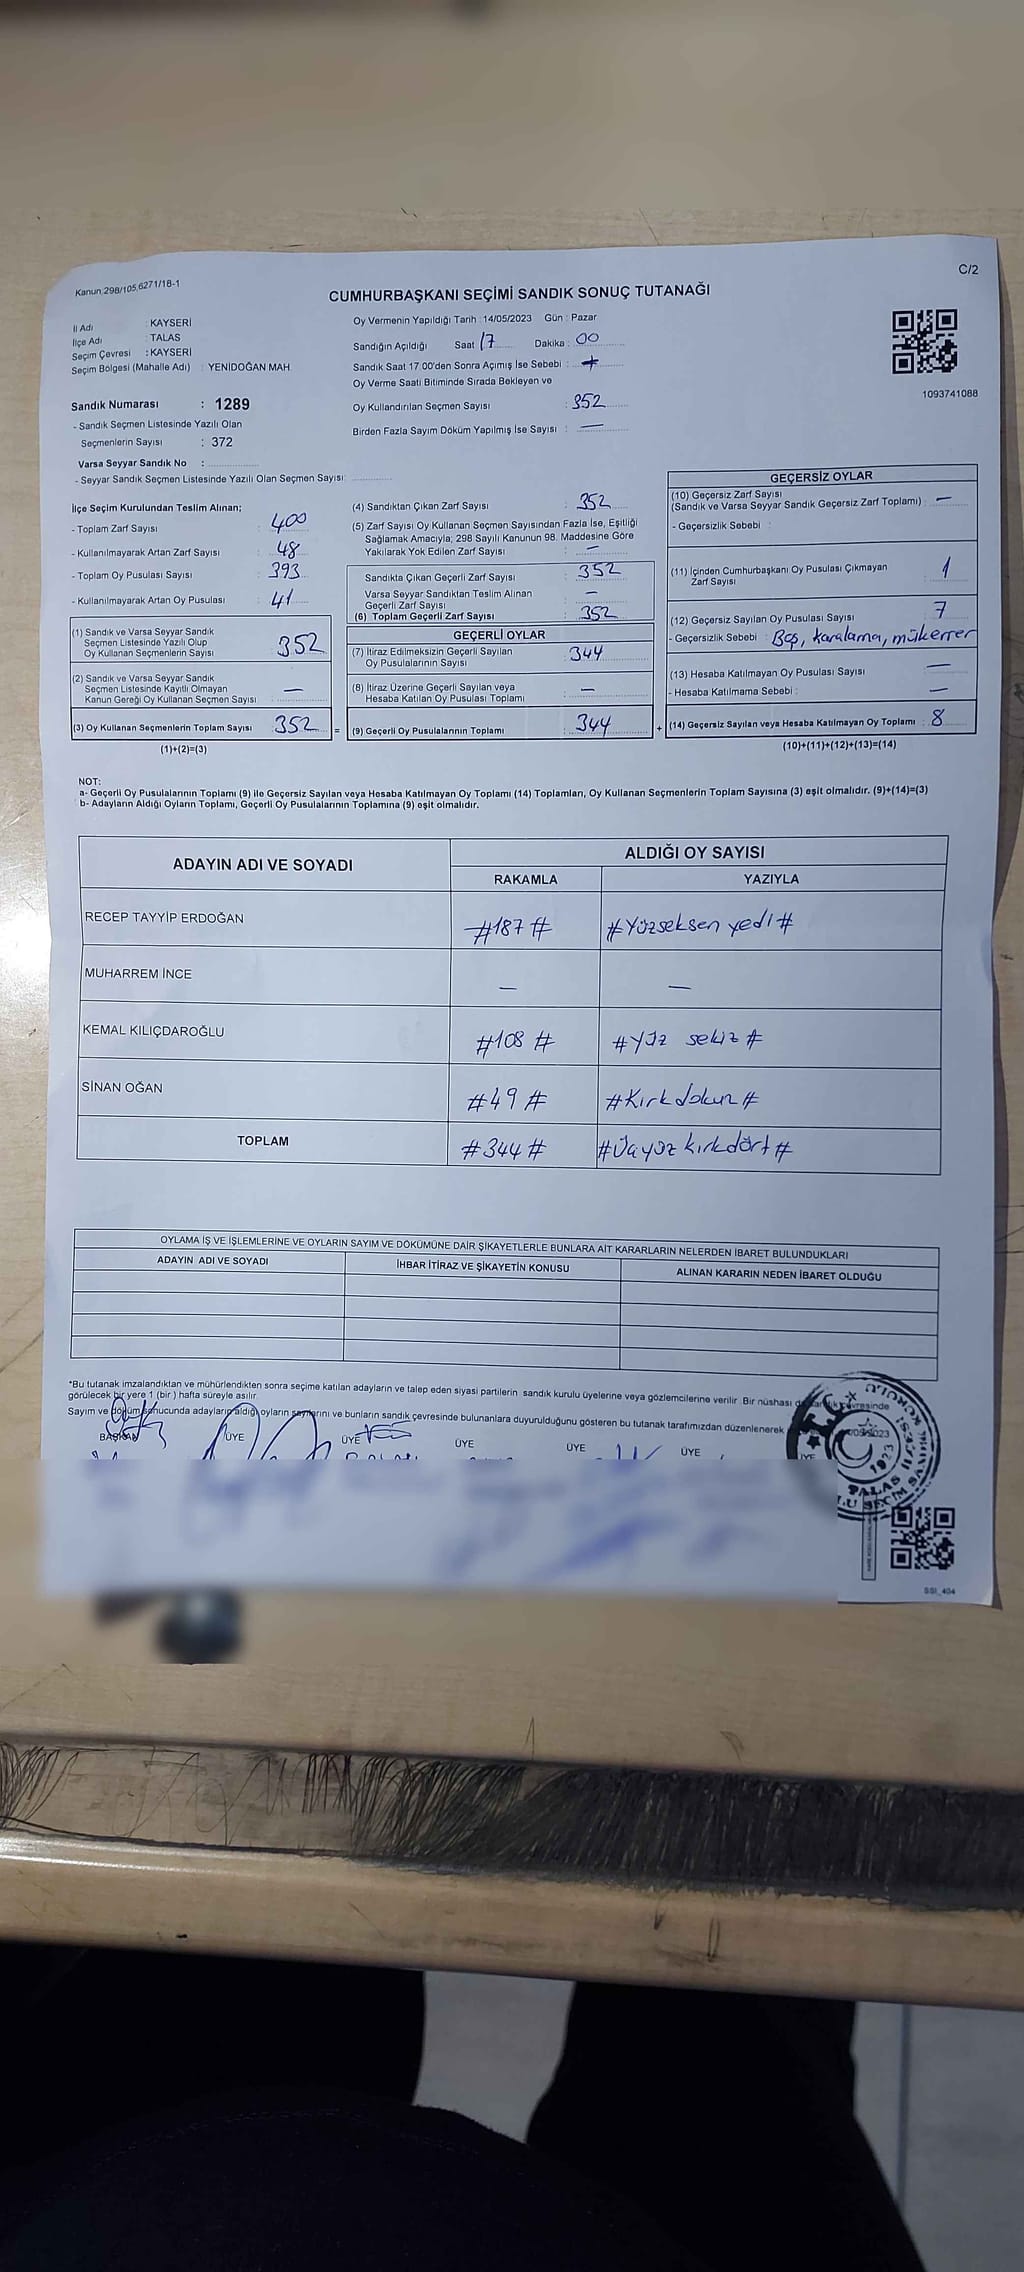 Kanun:298/105,6271/18-1
C/2
CUMHURBAŞKANI SEÇİMİ SANDIK SONUÇ TUTANAĞI
İl Adı : KAYSERİ
İlçe Adı : TALAS
Seçim Çevresi : KAYSERİ
Seçim Bölgesi (Mahalle Adı) : YENİDOĞAN MAH.
Sandık Numarası : 1289
- Sandık Seçmen Listesinde Yazılı Olan
Seçmenlerin Sayısı : 372
Varsa Seyyar Sandık No :
- Seyyar Sandık Seçmen Listesinde Yazılı Olan Seçmen Sayısı:
Oy Vermenin Yapıldığı Tarih : 14/05/2023 Gün : Pazar
Sandığın Açıldığı Saat 17 Dakika : 00
Sandık Saat 17:00'den Sonra Açımış İse Sebebi :
Oy Verme Saati Bitiminde Sırada Bekleyen ve
Oy Kullandırılan Seçmen Sayısı : 352
Birden Fazla Sayım Döküm Yapılmış İse Sayısı : —
1093741088
İlçe Seçim Kurulundan Teslim Alınan;
- Toplam Zarf Sayısı : 400
- Kullanılmayarak Artan Zarf Sayısı : 48
- Toplam Oy Pusulası Sayısı : 393
- Kullanılmayarak Artan Oy Pusulası : 41
(1) Sandık ve Varsa Seyyar Sandık
Seçmen Listesinde Yazılı Olup
Oy Kullanan Seçmenlerin Sayısı : 352
(2) Sandık ve Varsa Seyyar Sandık
Seçmen Listesinde Kayıtlı Olmayan
Kanun Gereği Oy Kullanan Seçmen Sayısı : —
(3) Oy Kullanan Seçmenlerin Toplam Sayısı : 352 =
(1)+(2)=(3)
(4) Sandıktan Çıkan Zarf Sayısı : 352
(5) Zarf Sayısı Oy Kullanan Seçmen Sayısından Fazla İse, Eşitliği
Sağlamak Amacıyla; 298 Sayılı Kanunun 98. Maddesine Göre
Yakılarak Yok Edilen Zarf Sayısı : —
Sandıkta Çıkan Geçerli Zarf Sayısı : 352
Varsa Seyyar Sandıktan Teslim Alınan
Geçerli Zarf Sayısı : —
(6) Toplam Geçerli Zarf Sayısı : 352
GEÇERLİ OYLAR
(7) İtiraz Edilmeksizin Geçerli Sayılan
Oy Pusulalarının Sayısı : 344
(8) İtiraz Üzerine Geçerli Sayılan veya
Hesaba Katılan Oy Pusulası Toplamı : —
(9) Geçerli Oy Pusulalarının Toplamı : 344 +
GEÇERSİZ OYLAR
(10) Geçersiz Zarf Sayısı
(Sandık ve Varsa Seyyar Sandık Geçersiz Zarf Toplamı) : —
- Geçersizlik Sebebi :
(11) İçinden Cumhurbaşkanı Oy Pusulası Çıkmayan
Zarf Sayısı : 1
(12) Geçersiz Sayılan Oy Pusulası Sayısı : 7
- Geçersizlik Sebebi : Boş, karalama, mükerrer
(13) Hesaba Katılmayan Oy Pusulası Sayısı : —
- Hesaba Katılmama Sebebi : —
(14) Geçersiz Sayılan veya Hesaba Katılmayan Oy Toplamı : 8
(10)+(11)+(12)+(13)=(14)
NOT:
a- Geçerli Oy Pusulalarının Toplamı (9) ile Geçersiz Sayılan veya Hesaba Katılmayan Oy Toplamı (14) Toplamları, Oy Kullanan Seçmenlerin Toplam Sayısına (3) eşit olmalıdır. (9)+(14)=(3)
b- Adayların Aldığı Oyların Toplamı, Geçerli Oy Pusulalarının Toplamına (9) eşit olmalıdır.
ADAYIN ADI VE SOYADI ALDIĞI OY SAYISI
RAKAMLA YAZIYLA
RECEP TAYYİP ERDOĞAN #187# #Yüzseksen yedi#
MUHARREM İNCE — —
KEMAL KILIÇDAROĞLU #108# #Yüz sekiz#
SİNAN OĞAN #49# #Kırkdokuz#
TOPLAM #344# #Üçyüz kırkdört#
OYLAMA İŞ VE İŞLEMLERİNE VE OYLARIN SAYIM VE DÖKÜMÜNE DAİR ŞİKAYETLERLE BUNLARA AİT KARARLARIN NELERDEN İBARET BULUNDUKLARI
ADAYIN ADI VE SOYADI İHBAR İTİRAZ VE ŞİKAYETİN KONUSU ALINAN KARARIN NEDEN İBARET OLDUĞU
*Bu tutanak imzalandıktan ve mühürlendikten sonra seçime katılan adayların ve talep eden siyasi partilerin sandık kurulu üyelerine veya gözlemcilerine verilir. Bir nüshası da sandık çevresinde
görülecek bir yere 1 (bir ) hafta süreyle asılır.
Sayım ve döküm sonucunda adayların aldığı oyların sayılarını ve bunların sandık çevresinde bulunanlara duyurulduğunu gösteren bu tutanak tarafımızdan düzenlenerek
BAŞKAN ÜYE ÜYE ÜYE ÜYE ÜYE ÜYE
T.C.
1923
TALAS
SSI_404